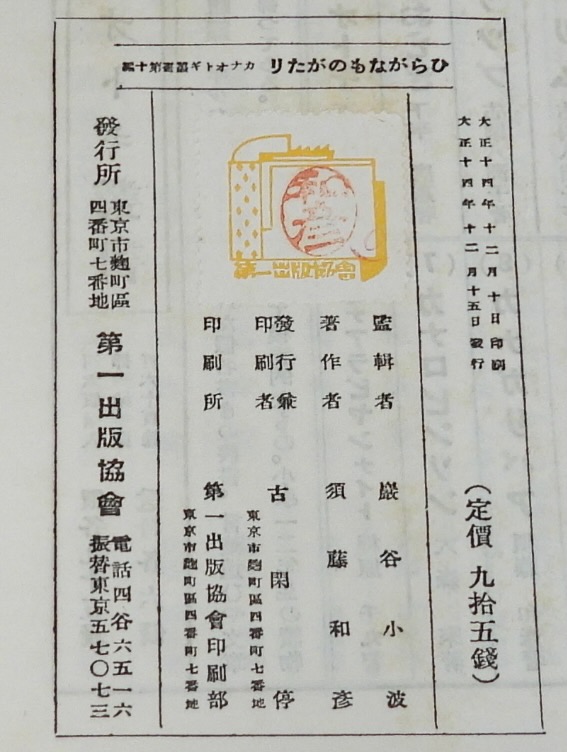 ひらがなものがたり カナオトギ叢書第十編
大正十四年十二月十日印刷
大正十四年十二月十五日發行
(定價 九拾五錢)
第一出版協會
監輯者 巖谷小波
著作者 須藤和彥
發行兼
印刷者 古閑停
東京市麴町區四番町七番地
印刷所 第一出版協會印刷部
東京市麴町區四番町七番地
發行所
東京市麴町區
四番町七番地
第一出版協會
電話四谷六五一六
振替東京五七〇七三